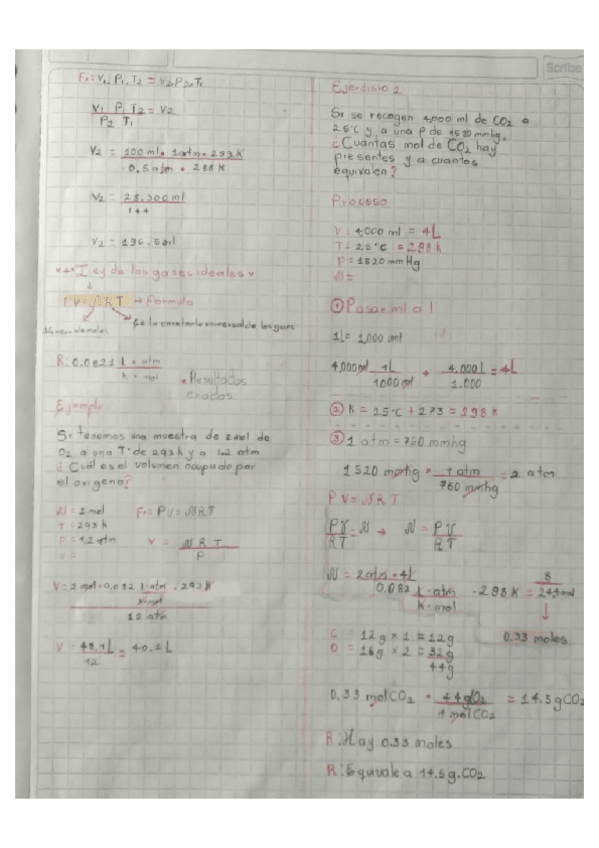 Scribe
Fr: V1. P1. T2 = V2. P2. T1
V1 P1 T2 = V2
P2 T1
V2 = 100 ml • 1atm • 293K
0.5 atm • 288 K
V2 = 29,300 ml
144
Ley de los gases ideales
PV = NRT → Formula
Es la constante universal de los gases
R: 0.0821 L • atm
K • mol
• Resultados
exactos
Ejemplo
Si tenemos una muestra de 2 mol de
O2 a una T° de 293 K y a 1.2 atm
¿Cuál es el volumen ocupado por
el oxigeno?
N = 2 mol
T = 293 K
P = 1.2 atm
V =
Fr: PV = NRT
V = N R T
P
V = 2 mol • 0.082 L•atm • 293 K
K•mol
12 atm
V = 48.1L = 40.1L
12
Ejercicio 2
Si se recogen 4,000 ml de CO2 a
25°C y a una P de 1520 mmHg.
¿Cuantas mol de CO2 hay
presentes y a cuantos
equivalen?
Proceso
V = 4,000 ml = 4L
T = 25°C = 298 K
P = 1520 mm Hg
N =
① Pasar ml a l
1L = 1,000 ml
4,000 ml 1L + 4.000 L = 4L
1000 ml 1.000
② K = 25°C + 273 = 298 K
③ 1 atm = 760 mmhg
1520 mmhg × 1 atm = 2 atm
760 mmhg
PV = NRT
PV = N → N = PV
RT RT
N = 2 atm • 4L
0.082 L • atm • 298 K =
K • mol
8
0.33 moles
C = 12g × 1 = 12g
O = 16g × 2 = 32g
44g
0.33 mol CO2 • 44 gO2 = 14.5 g CO2
1 mol CO2
R: Hay 0.33 moles
R: Equivale a 14.5 g. CO2